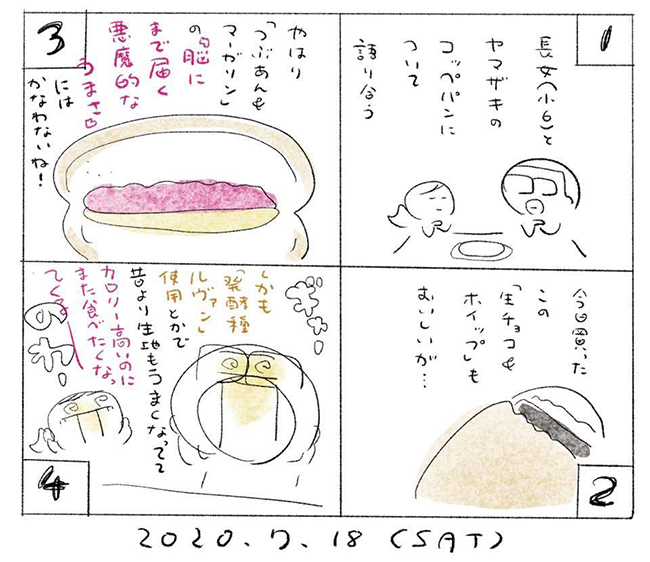 1
長女(小6)と
ヤマザキの
コッペパンに
ついて
語り合う
2
今日買った
この
「生チョコ&
ホイップ」も
おいしいが…
3
やはり
「つぶあん&
マーガリン」
の「脳に
まで届く
悪魔的な
うまさ」
には
かなわないね!
4
しかも
「発酵種
ルヴァン」
使用とかで
昔より生地もうまくなってて
カロリー高いのに
また食べたくなっ
てくる
ぎゃー
のれー
2020.7.18 (SAT)